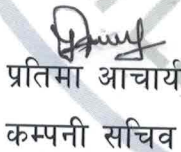 प्रतिमा आचार्य
कम्पनी सचिव